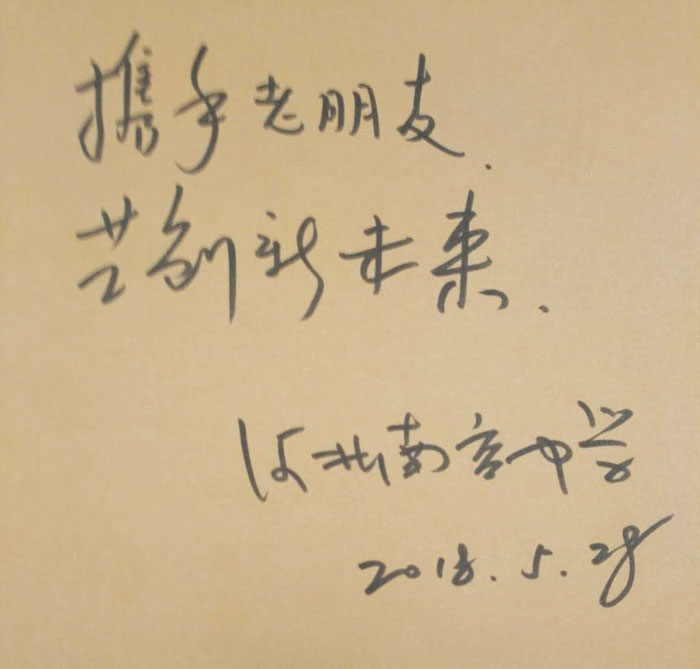 携手老朋友.
共创新未来.
河北南宫中学
2018.5.28